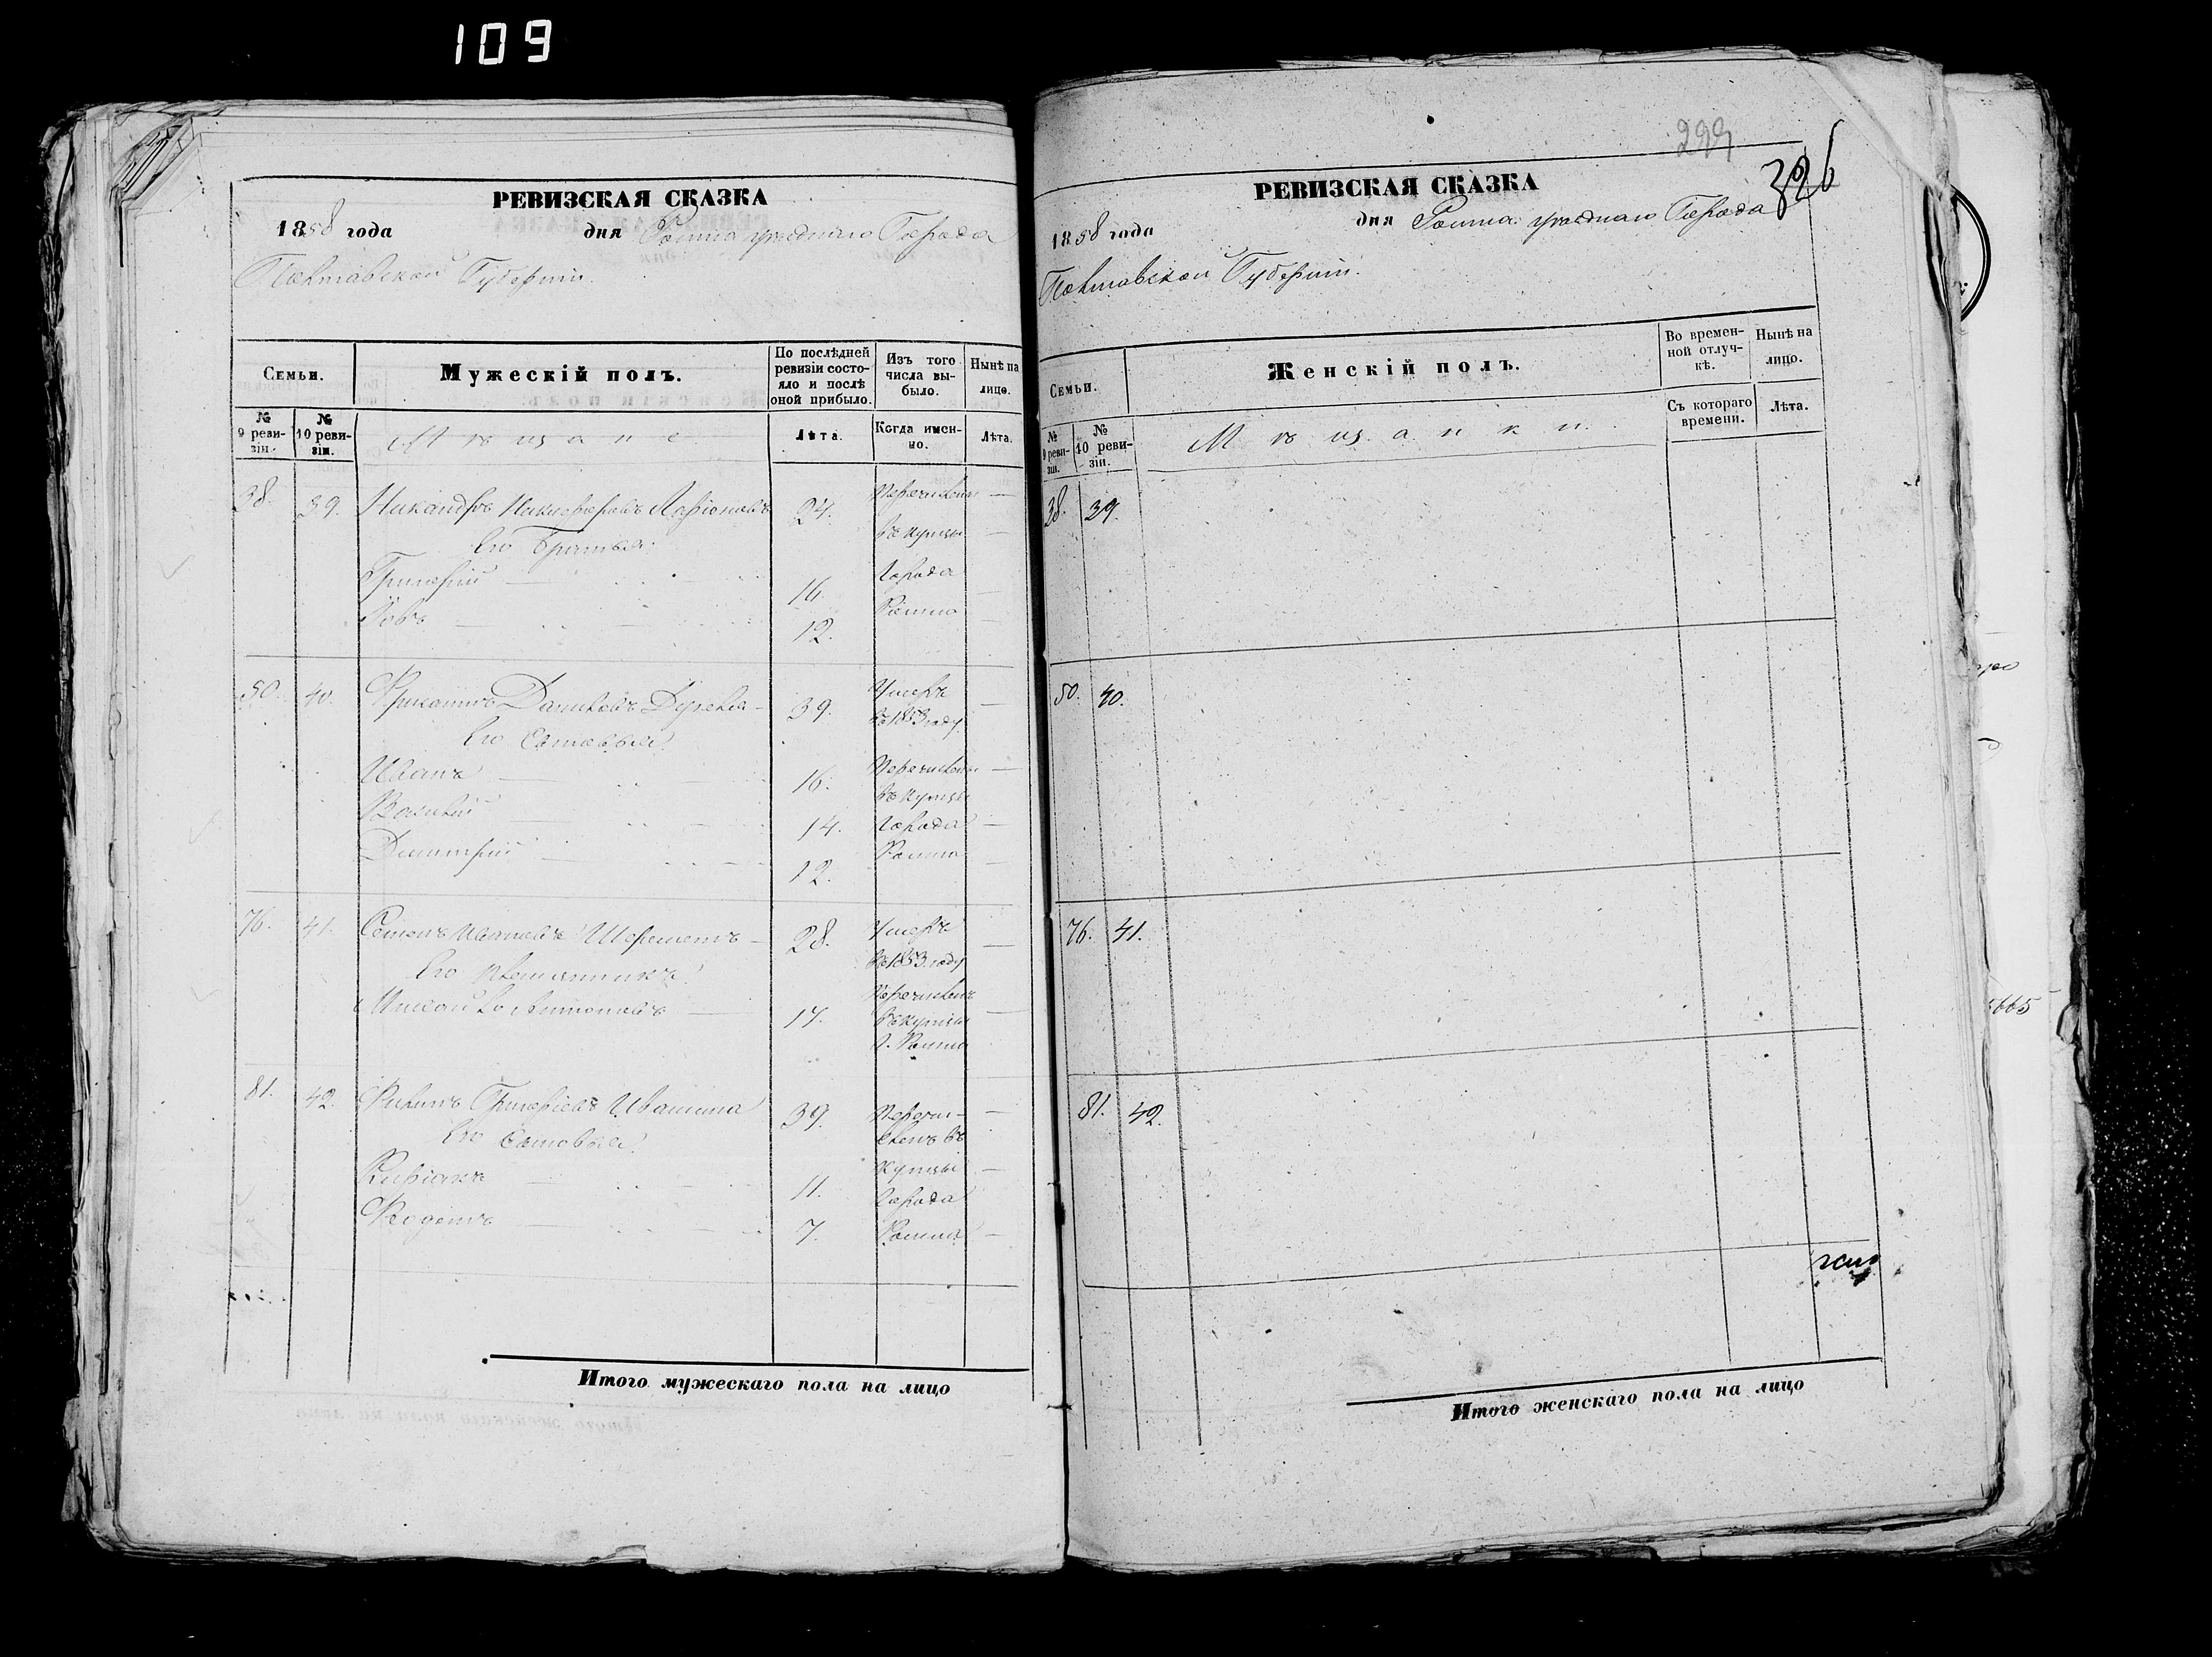 109
РЕВИЗСКАЯ СКАЗКА
1858 года дня Ромна уѣзднаго Города
Полтавской Губерніи.
Семьи.
Мужескій полъ.
По послѣдней ревизіи состояло и послѣ оной прибыло.
Изъ того числа выбыло.
Нынѣ на лицо.
№ 9 ревизіи.
№ 10 ревизіи.
Мѣщане
Лѣта.
Когда именно.
Лѣта.
38. 39. Никандръ Никифоровъ Ларіоновъ 24. Перечислены —
Его Братья: въ купцы —
Григорій — 16. города —
Іовъ — 12. Ромна —
50. 40. Даниловъ 39. Умеръ —
Его Сыновья: въ 1853 году
Иванъ — 16. Перечислены —
въ купцы
Василій — 14. города —
Дмитрій — 12. Ромна —
76. 41. Семенъ Ивановъ Шереметъ — 28. Умеръ —
Его племянникъ: въ 1853 году
Михайло Антоновъ — 17. Перечисленъ —
въ купцы
г. Ромна
81. 42. Филипъ Григоріевъ Ивашина 39. Перечи- —
Его Сыновья: сленъ въ
Киріакъ — 11. купцы —
города
Федотъ — 7. Ромна —
Итого мужескаго пола на лицо
299
326
РЕВИЗСКАЯ СКАЗКА
1858 года дня Ромна уѣзднаго Города
Полтавской Губерніи.
Семьи.
Женскій полъ.
Во временной отлучкѣ.
Нынѣ на лицо.
№ 9 ревизіи.
№ 10 ревизіи.
Мѣщанки.
Съ котораго времени.
Лѣта.
38. 39.
50. 40.
76. 41.
81. 42.
Итого женскаго пола на лицо